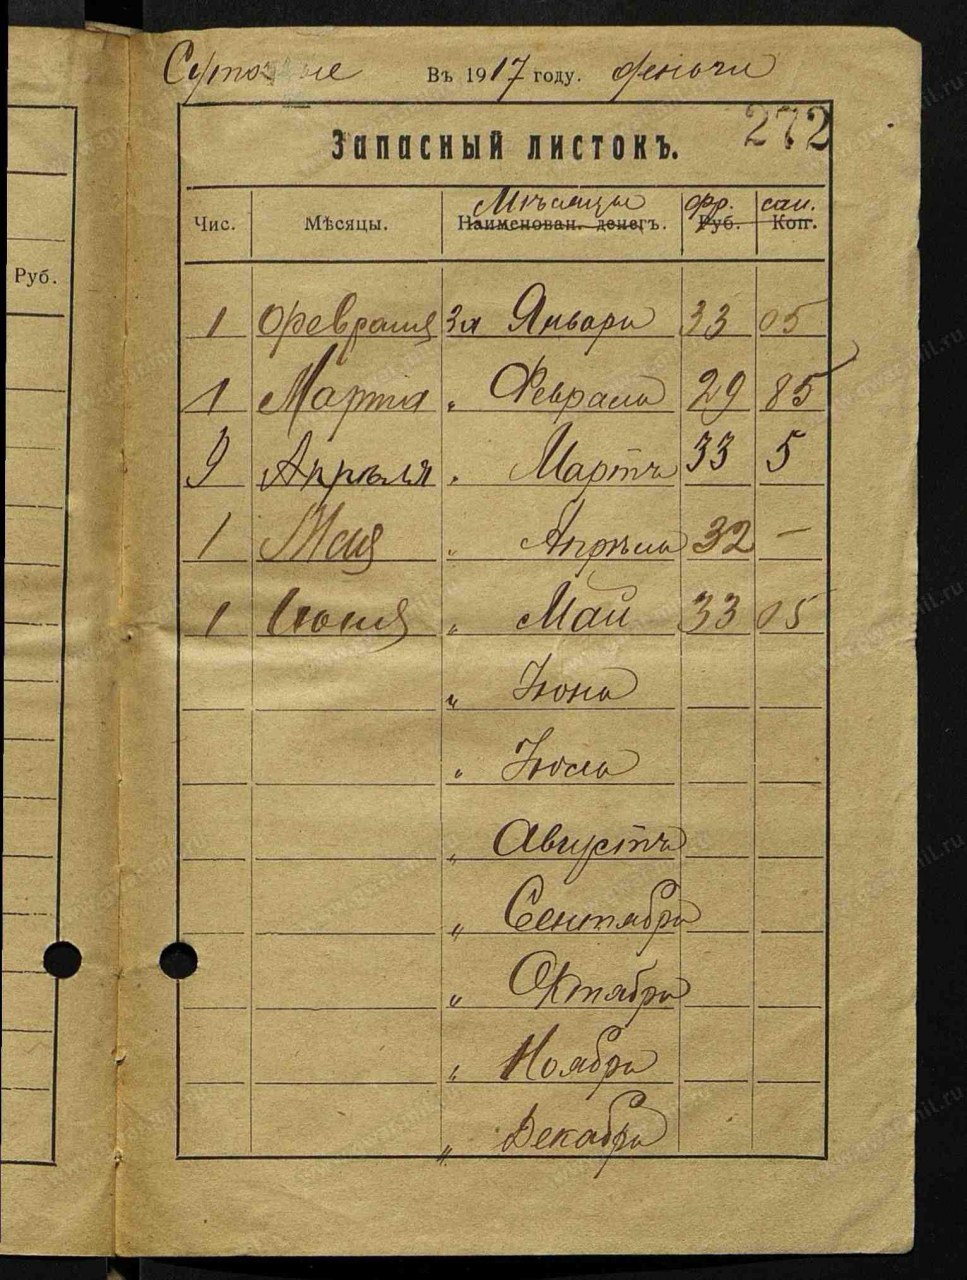 Суточные Въ 1917 году. деньги
272
Запасный листокъ.
Мѣсяцы фр. сан.
Чис. Мѣсяцы. Наименован. денегъ. Руб. Коп.
Руб.
1 Февраля За Январь 33 05
1 Марта " Февраль 29 85
9 Апрѣля " Мартъ 33 5
1 Мая " Апрѣль 32 —
1 Июня " Май 33 05
" Іюнь
" Іюль
" Августъ
" Сентябрь
" Октябрь
" Ноябрь
" Декабрь